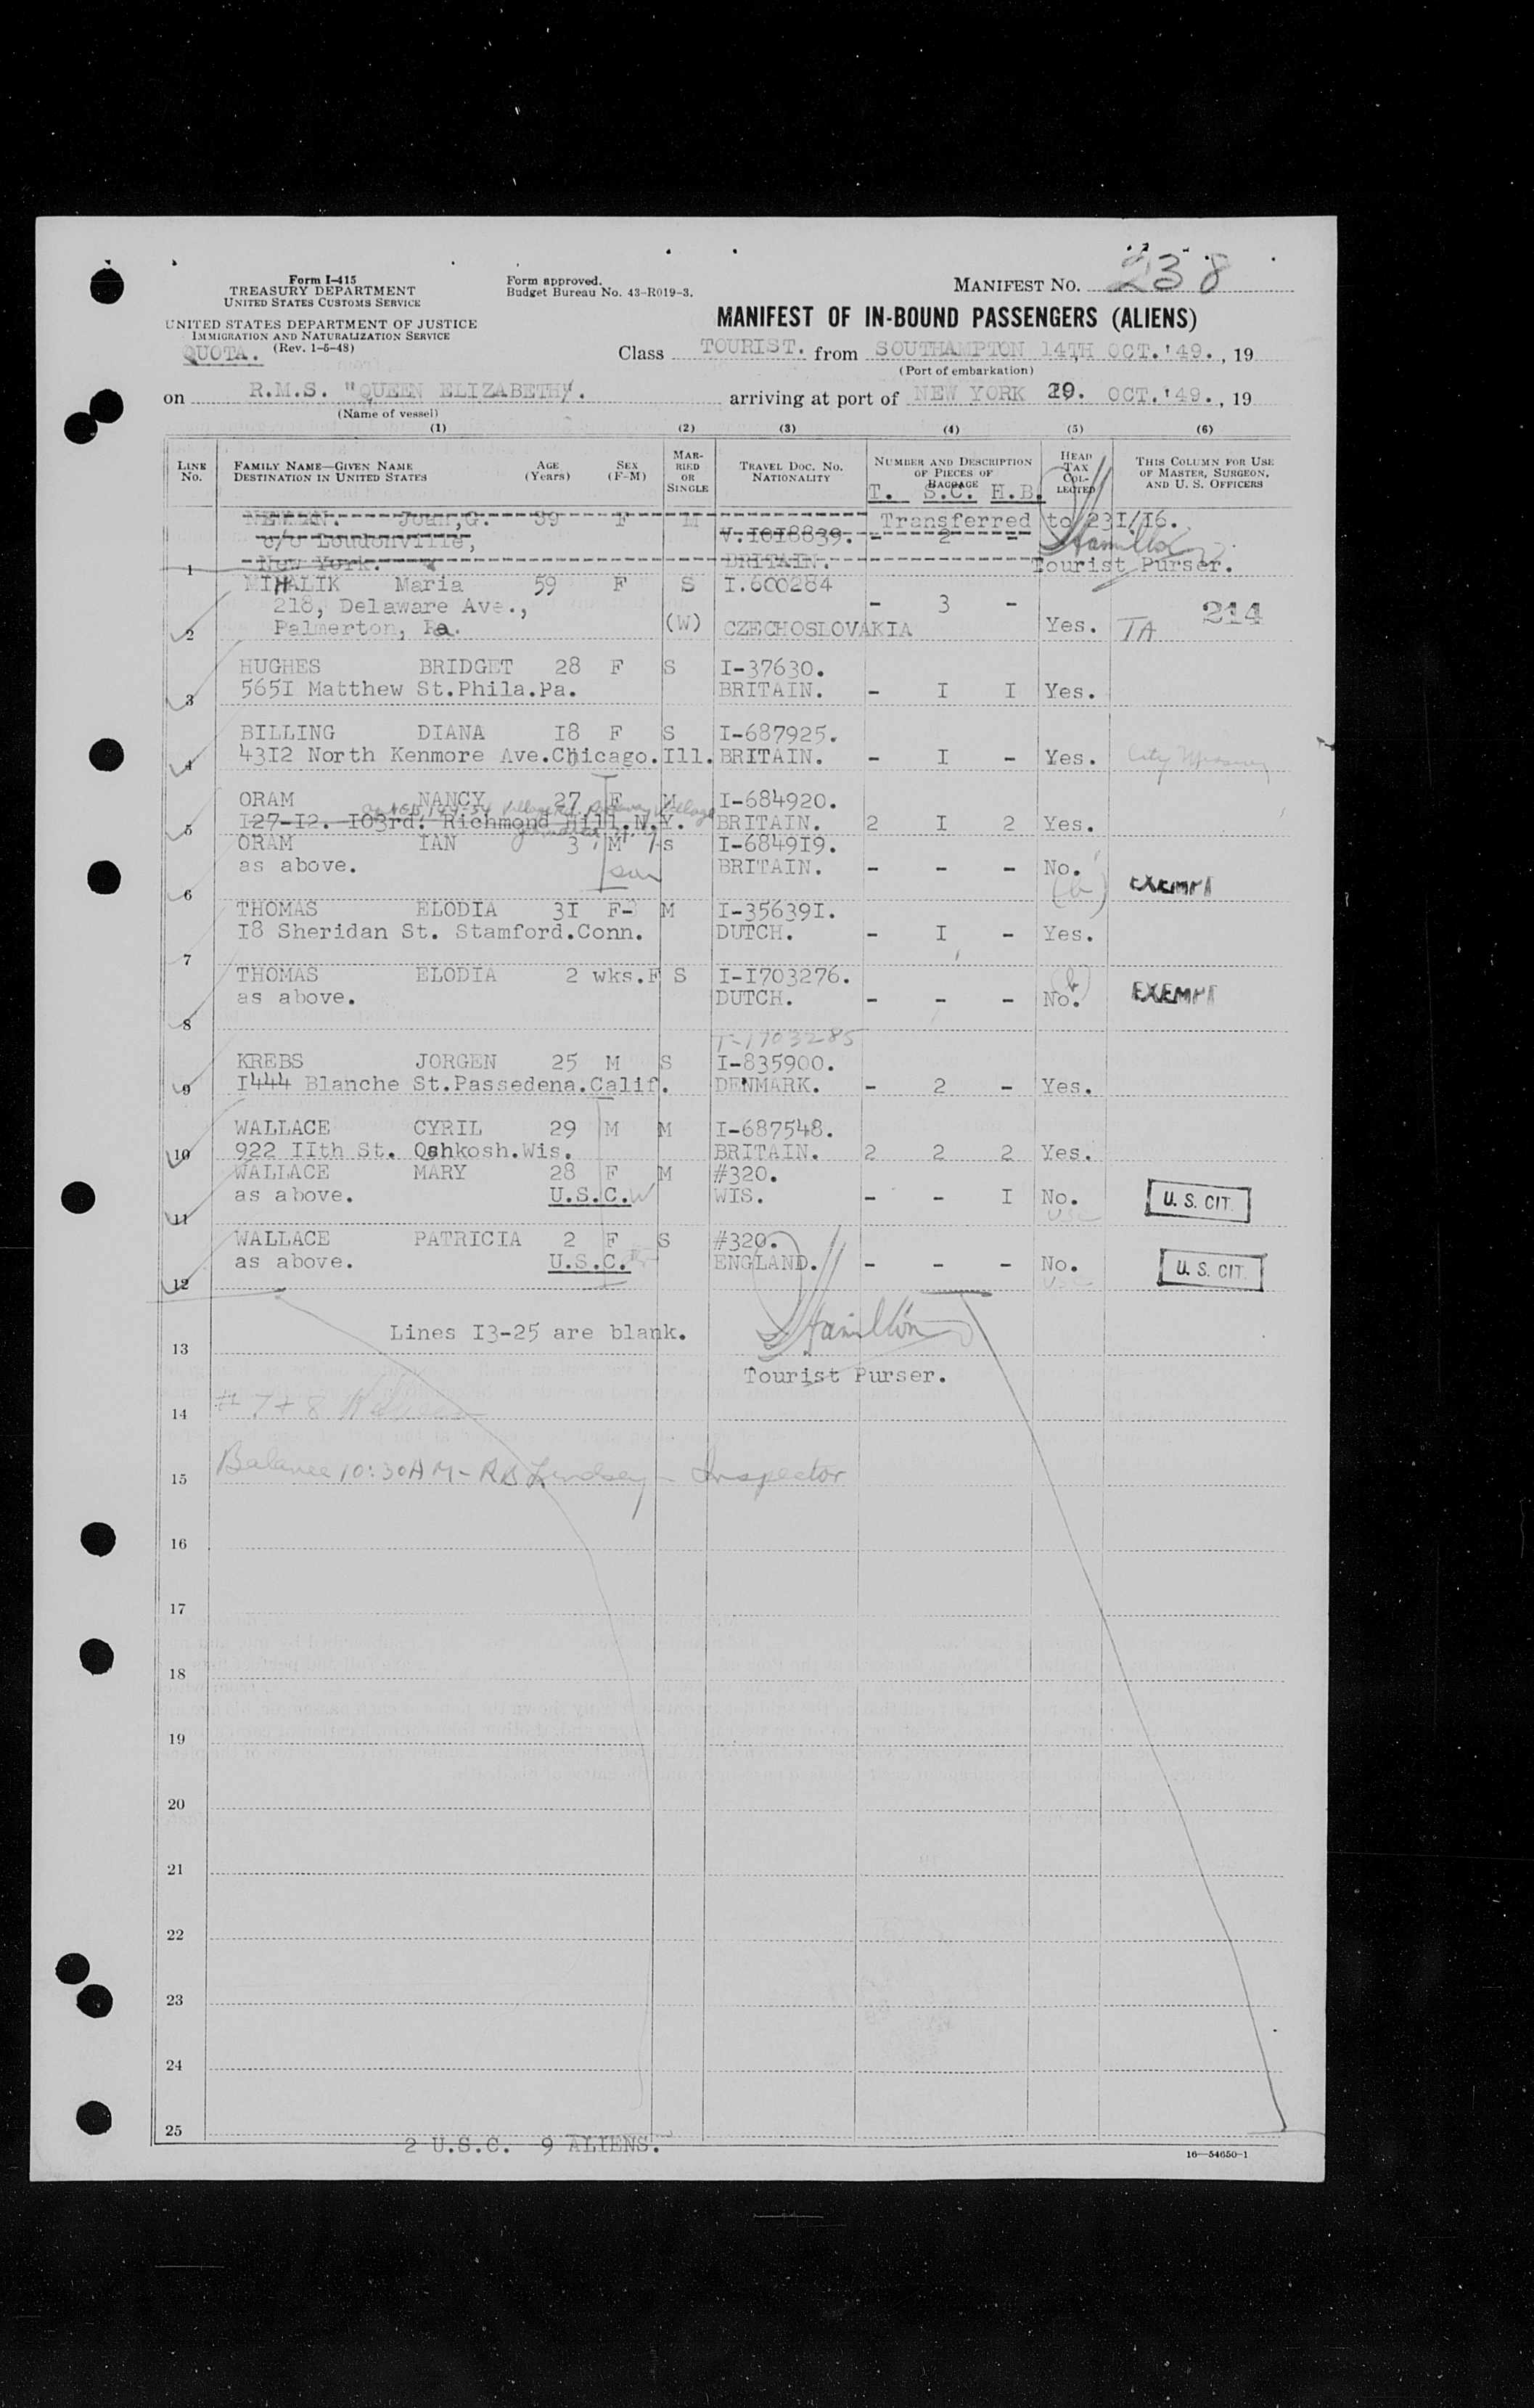 Form I-415
TREASURY DEPARTMENT
UNITED STATES CUSTOMS SERVICE
Form approved.
Budget Bureau No. 43-R019-3.
MANIFEST NO. 238
UNITED STATES DEPARTMENT OF JUSTICE
IMMIGRATION AND NATURALIZATION SERVICE
(Rev. 1-5-48)
QUOTA.
MANIFEST OF IN-BOUND PASSENGERS (ALIENS)
Class TOURIST. from SOUTHAMPTON 14TH OCT.'49., 19
(Port of embarkation)
on R.M.S. "QUEEN ELIZABETH". arriving at port of NEW YORK OCT.'49., 19
(Name of vessel)
(1) (2) (3) (4) (5) (6)
LINE No. FAMILY NAME—GIVEN NAME DESTINATION IN UNITED STATES AGE (Years) SEX (F-M) MARRIED OR SINGLE TRAVEL DOC. NO. NATIONALITY NUMBER AND DESCRIPTION OF PIECES OF BAGGAGE HEAD TAX COLLECTED THIS COLUMN FOR USE OF MASTER, SURGEON, AND U. S. OFFICERS
T. S.C. H.B.
Joan,G. 39 F M Transferred to 231/16.
c/o Loudonville, V.1018839. - 2 - Hamilton
1 New York. BRITAIN. Tourist Purser.
MIHALIK Maria 59 F S I.600284
218, Delaware Ave., - 3 - 214
2 Palmerton, Pa. (W) CZECHOSLOVAKIA Yes. TA
HUGHES BRIDGET 28 F S I-37630.
3 565I Matthew St.Phila.Pa. BRITAIN. - I I Yes.
BILLING DIANA I8 F S I-687925.
4 43I2 North Kenmore Ave.Chicago.Ill. BRITAIN. - I - Yes. City
ORAM NANCY 27 F M I-684920.
5 I27-I2. I03rd. Richmond Hill.N.Y. BRITAIN. 2 I 2 Yes.
ORAM IAN 3 M S I-6849I9.
as above. son BRITAIN. - - - No.
6 (b) EXEMPT
THOMAS ELODIA 3I F M I-35639I.
I8 Sheridan St. Stamford.Conn. DUTCH. - I - Yes.
7
THOMAS ELODIA 2 wks.F S I-I703276. (b)
as above. DUTCH. - - - No. EXEMPT
8
I-1703285
KREBS JORGEN 25 M S I-835900.
9 I444 Blanche St.Passedena.Calif. DENMARK. - 2 - Yes.
WALLACE CYRIL 29 M M I-687548.
10 922 IIth St. Oshkosh.Wis. BRITAIN. 2 2 2 Yes.
WALLACE MARY 28 F M #320.
as above. U.S.C. W WIS. - - I No. U. S. CIT.
11 USC
WALLACE PATRICIA 2 F S #320.
as above. U.S.C. ENGLAND. - - - No. U. S. CIT.
12 USC
Lines I3-25 are blank. Hamilton
13
Tourist Purser.
14 # 7 + 8
15 Balance 10:30AM - RB Lindsey - Inspector
16
17
18
19
20
21
22
23
24
25
2 U.S.C. 9 ALIENS.
16—54650-1